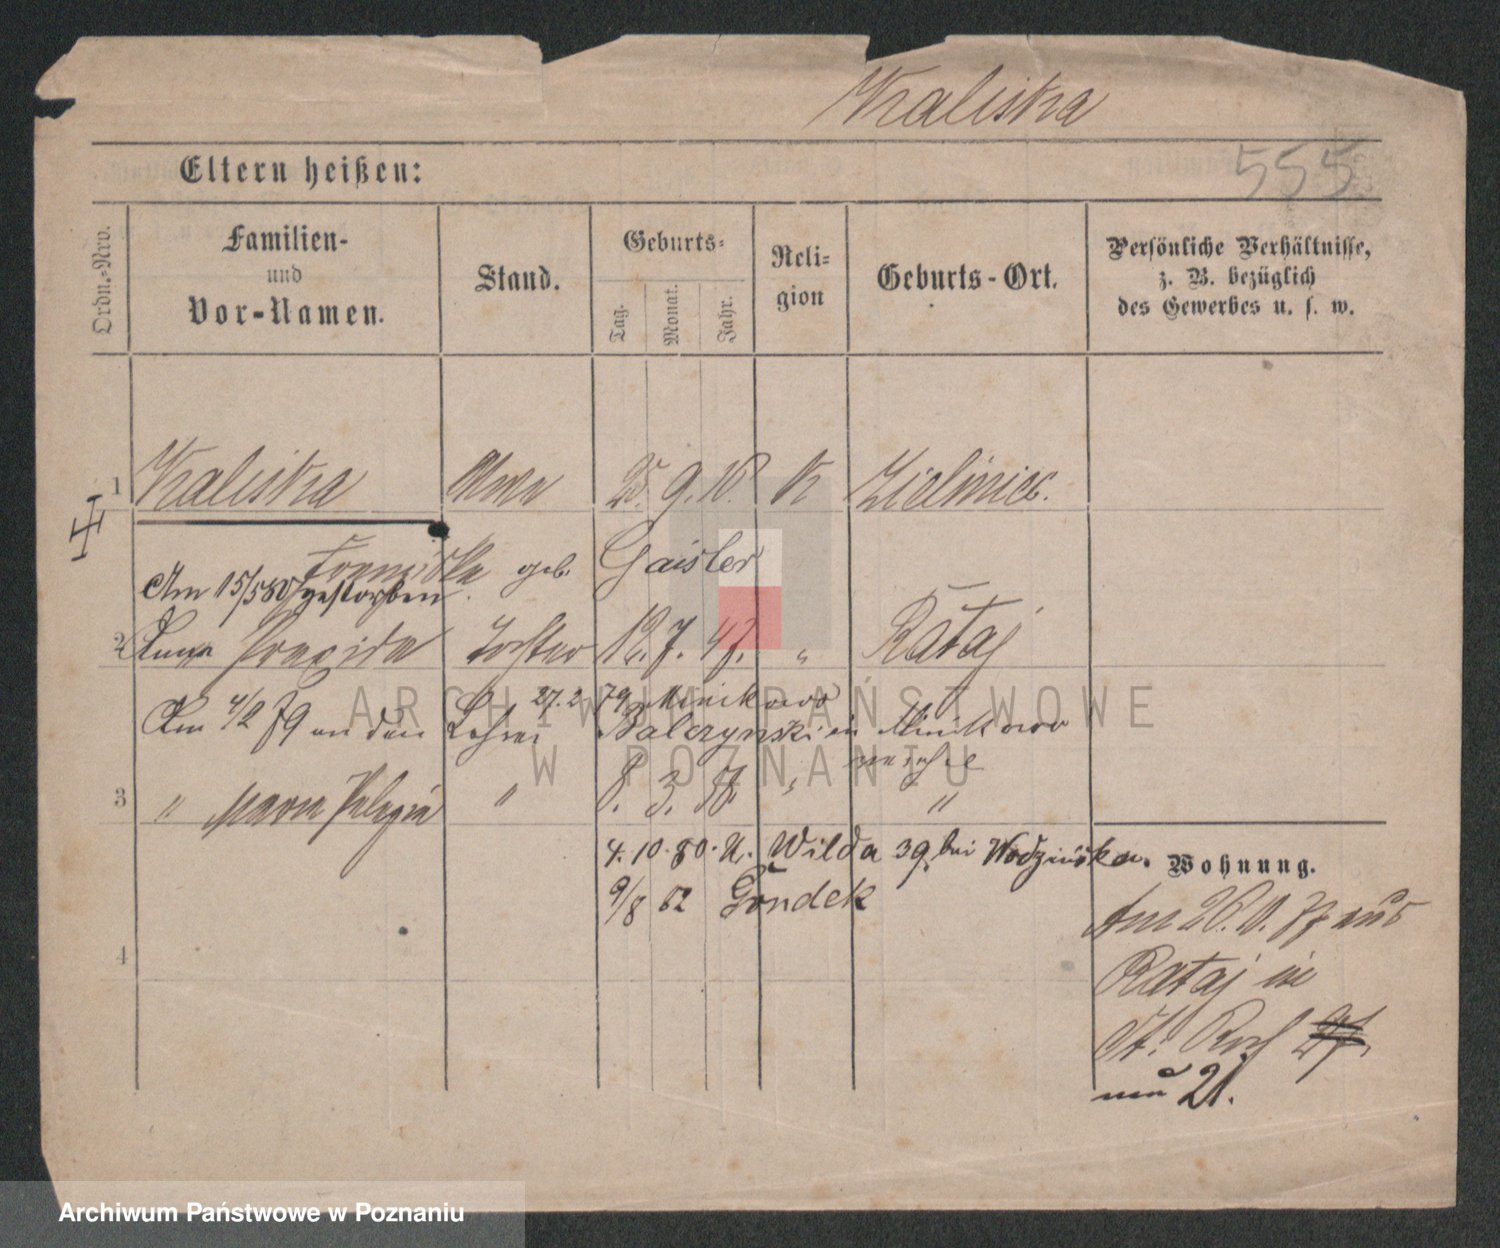 Kaliska
555
Eltern heißen:
Ordn.-Nro.
Familien-
und
Vor-Namen.
Stand.
Geburts-
Tag.
Monat.
Jahr.
Reli-
gion
Geburts-Ort.
Persönliche Verhältnisse,
z. B. bezüglich
des Gewerbes u. s. w.
1 Kaliska 25. 9. K Zieliniec.
Franziska geb. Gaisler
Am 15/5 80 gestorben.
2 Anna Praxida Tochter 12. 7. 47. " Rataj
27. 2. 79 Minikowo
Am 4/2 79 an den Lehrer Balczynski in Minikowo
3 " Maria Pelagia " 8. 3. " "
4. 10. 80. U. Wilda 39. bei Wodzinska.
9/8 82 Gondek
Wohnung.
4
Am 26. aus
Rataj in
St. Roch 27.
nun 21.
ARCHIWUM PAŃSTWOWE
W POZNANIU
Archiwum Państwowe w Poznaniu